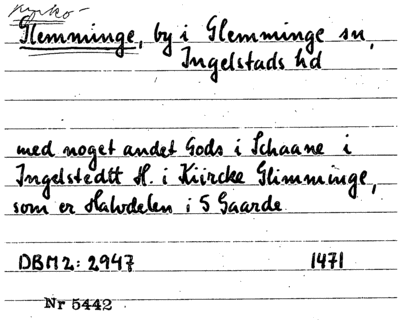 Kyrko-
Glemminge, by i Glemminge sn,
Ingelstads hd
med noget andet Gods i Schaane i
Ingelstedtt H. i Kiircke Glimminge,
som er Halvdelen i 5 Gaarde
DBM 2: 2947 1471
Nr 5442